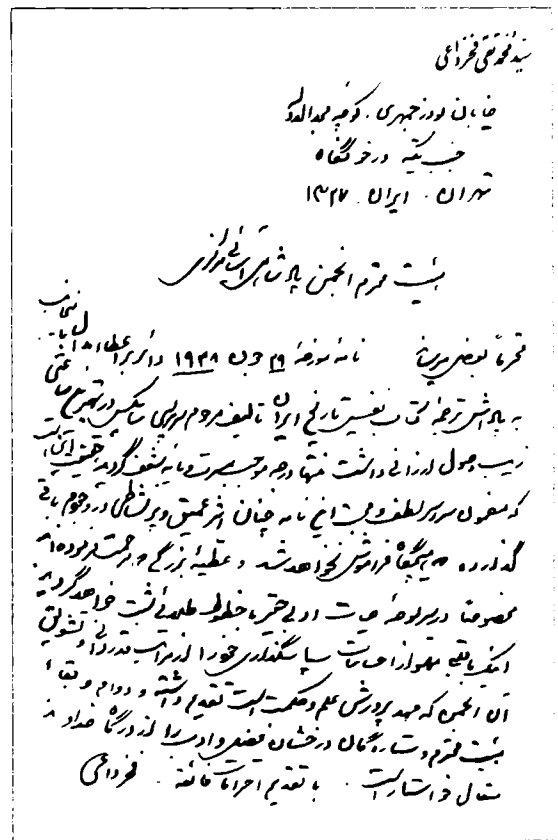 سید محمد تقی فخرداعی
خیابان بوذرجمهری . کوچه مجدالدوله
جنب تکیه درخونگاه
تهران . ایران . ۱۳۲۷
هیئت محترم انجمن پادشاهی آسیائی مرکزی
محترماً بعرض میرساند نامه مورخهٔ ۲۹ ژون ۱۹۴۸ دائر بر اعطاء مدال
به پاداش ترجمهٔ کتاب نفیس تاریخ ایران تألیف مرحوم سرپرسی سایکس در
زیب وصول ارزانی داشت منتها درجه موجب مسرت و مایهٔ شعف گردید حقیقت این است
که مضمون سراسر لطف و محبت این نامه چنان اثر عمیق و پر نشاطی در روحم باقی
گذارده که هیچگاه فراموش نخواهد شد و عطیهٔ بزرگی که مرحمت فرموده‌اند
مخصوصاً در سرلوحهٔ حیات ادبی حقیر با خطوط طلائی ثبت خواهد گردید
اینک با قلبی مملو از احساسات سپاسگذاری خود را از مراتب قدردانی و تشویق
آن انجمن که مهد پرورش علم و حکمت است تقدیم داشته و دوام و بقاء
هیئت محترم و ستارگان درخشان فضل و ادب را از درگاه خداوند
متعال خواستار است . با تقدیم احترامات فائقه . فخرداعی